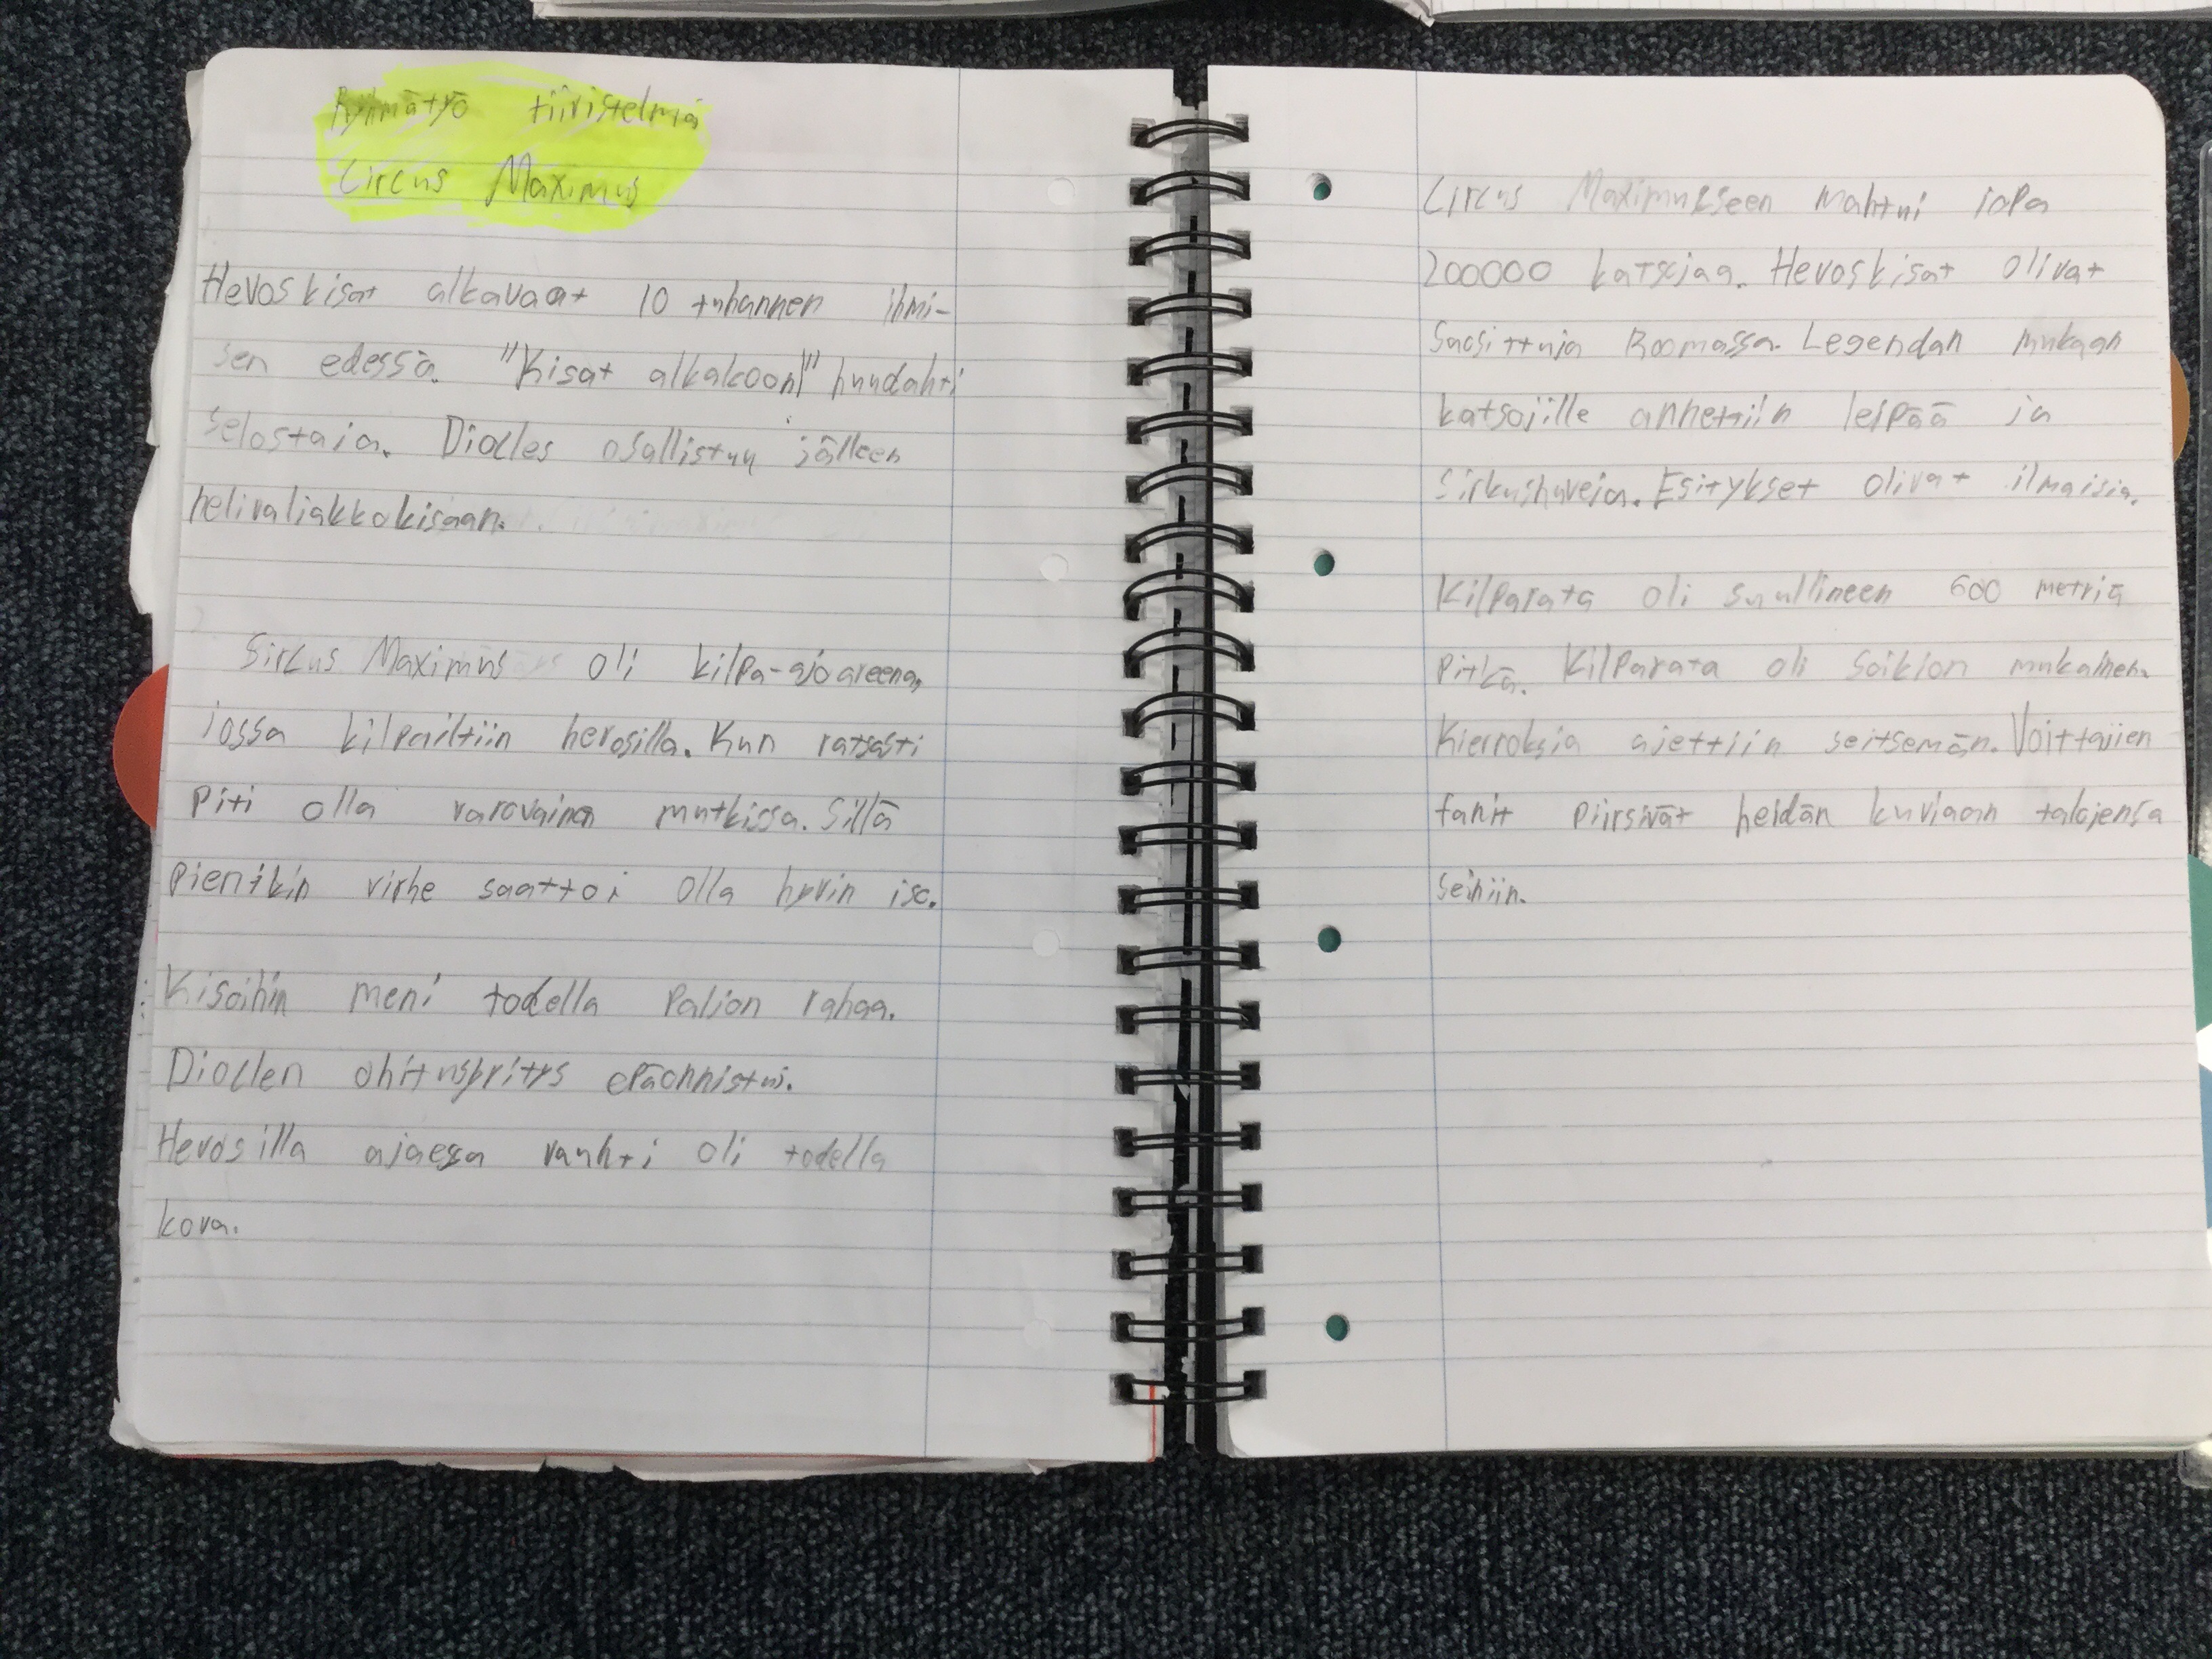 Ryhmätyö tiivistelmä
Circus Maximus
Hevoskisat alkavaat 10 tuhannen ihmi-
sen edessä. "Kisat alkakoon!" huudahti
selostaja. Diocles osallistuu jälleen
helivaljakkokisaan.
Sircus Maximus oli kilpa-ajoareena,
jossa kilpailtiin hevosilla. Kun ratsasti
Piti olla varovainen mutkissa. Sillä
Pienikin virhe saattoi olla hyvin iso.
Kisoihin meni todella Paljon rahaa.
Dioclen ohitusyritys epäonnistui.
Hevosilla ajaessa vauhti oli todella
kova.
Circus Maximukseen mahtui jopa
200000 katsojaa. Hevoskisat olivat
Suosittuja Roomassa. Legendan mukaan
katsojille annettiin leipää ja
Sirkushuveja. Esitykset olivat ilmaisia.
Kilparata oli suullineen 600 metriä
Pitkä. Kilparata oli Soikion mukainen.
Kierroksia ajettiin seitsemän. Voittajien
fanit Piirsivät heidän kuviaan talojensa
seiniin.